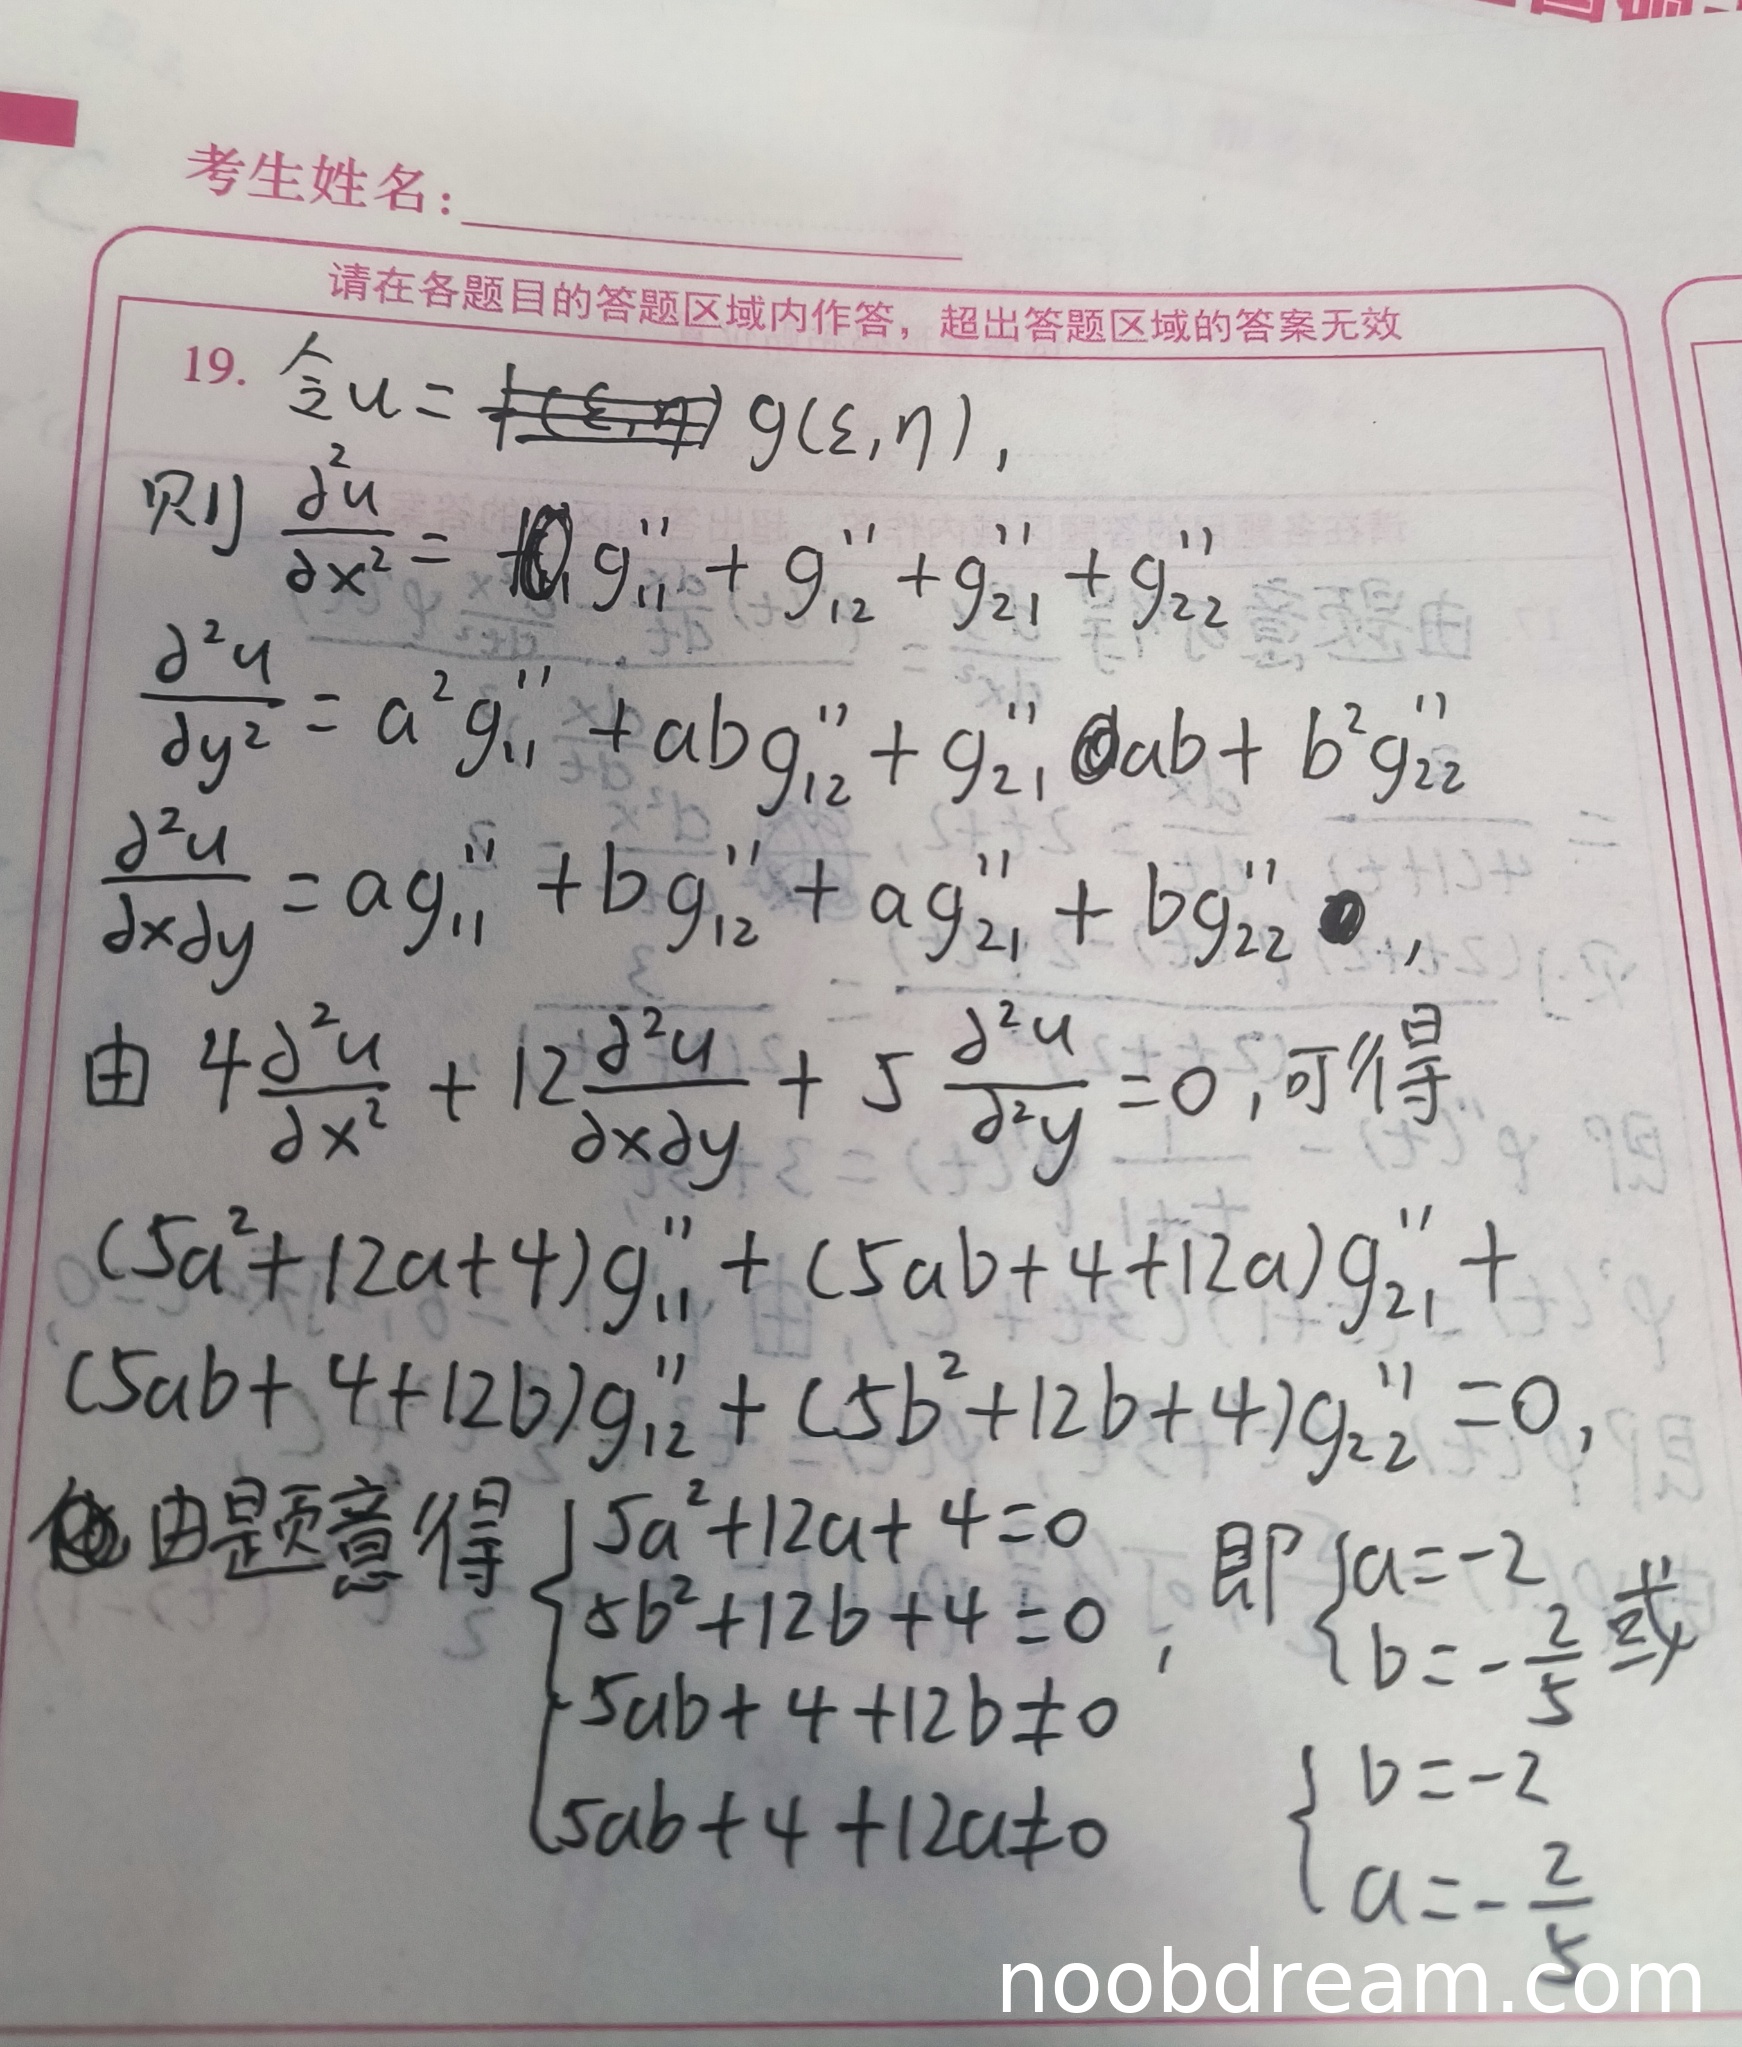 考生姓名:
请在各题目的答题区域内作答，超出答题区域的答案无效
19. 令u = g(ε,η),
则 ∂²u/∂x² = g₁₁'' + g₁₂'' + g₂₁'' + g₂₂''
∂²u/∂y² = a²g₁₁'' + abg₁₂'' + g₂₁''ab + b²g₂₂''
∂²u/∂x∂y = ag₁₁'' + bg₁₂'' + ag₂₁'' + bg₂₂'',
由 4∂²u/∂x² + 12∂²u/∂x∂y + 5∂²u/∂²y = 0, 可得
(5a²+12a+4)g₁₁'' + (5ab+4+12a)g₂₁'' +
(5ab+4+12b)g₁₂'' + (5b²+12b+4)g₂₂'' = 0,
由题意得 { 5a²+12a+4=0
5b²+12b+4=0
5ab+4+12b≠0
5ab+4+12a≠0
, 即 { a=-2
b=-2/5 或
{ b=-2
a=-2/5
noobdream.com